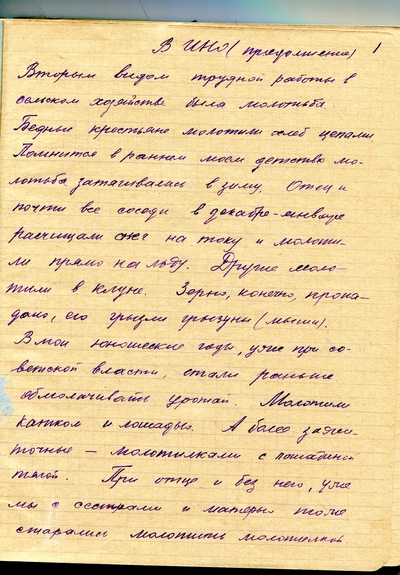 В ИНО (продолжение) 1
Вторым видом трудной работы в
сельском хозяйстве была молотьба.
Бедные крестьяне молотили хлеб цепами.
Помнится в раннем моем детстве мо-
лотьба затягивалась в зиму. Отец и
почти все соседи в декабре-январе
расчищали снег на току и молоти-
ли прямо на льду. Другие моло-
тили в клуне. Зерно, конечно, пропа-
дало, его грызли грызуны (мыши).
В мои юношеские годы, уже при со-
ветской власти, стали раньше
обмолачивать урожай. Молотили
катком и лошадью. А более зажи-
точные — молотилками с лошадиной
тягой. При отце и без него, уже
мы с сестрами и матерью тоже
старались молотить молотилкой